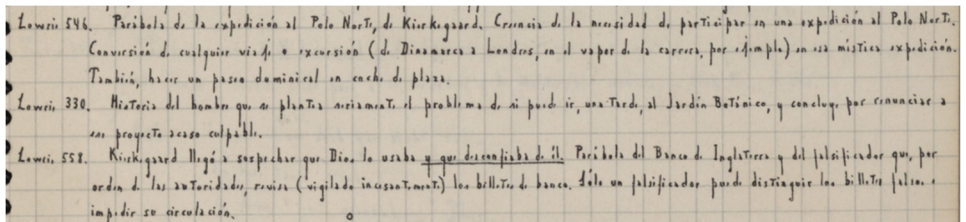 Lowrie 546. Parábola de la expedición al Polo Norte, de Kierkegaard. Creencia de la necesidad de participar en una expedición al Polo Norte.
Conversión de cualquier viaje o excursión (de Dinamarca a Londres, en el vapor de la carrera, por ejemplo) en esa mística expedición.
También, hacer un paseo dominical en coche de plaza.
Lowrie 330. Historia del hombre que se plantea seriamente el problema de si puede ir, una tarde, al Jardín Botánico, y concluye por renunciar a
ese proyecto acaso culpable.
Lowrie 558. Kierkegaard llegó a sospechar que Dios lo usaba y que desconfiaba de él. Parábola del Banco de Inglaterra y del falsificador que, por
orden de las autoridades, revisa (vigilado incesantemente) los billetes de banco. Sólo un falsificador puede distinguir los billetes falsos e
impedir su circulación.